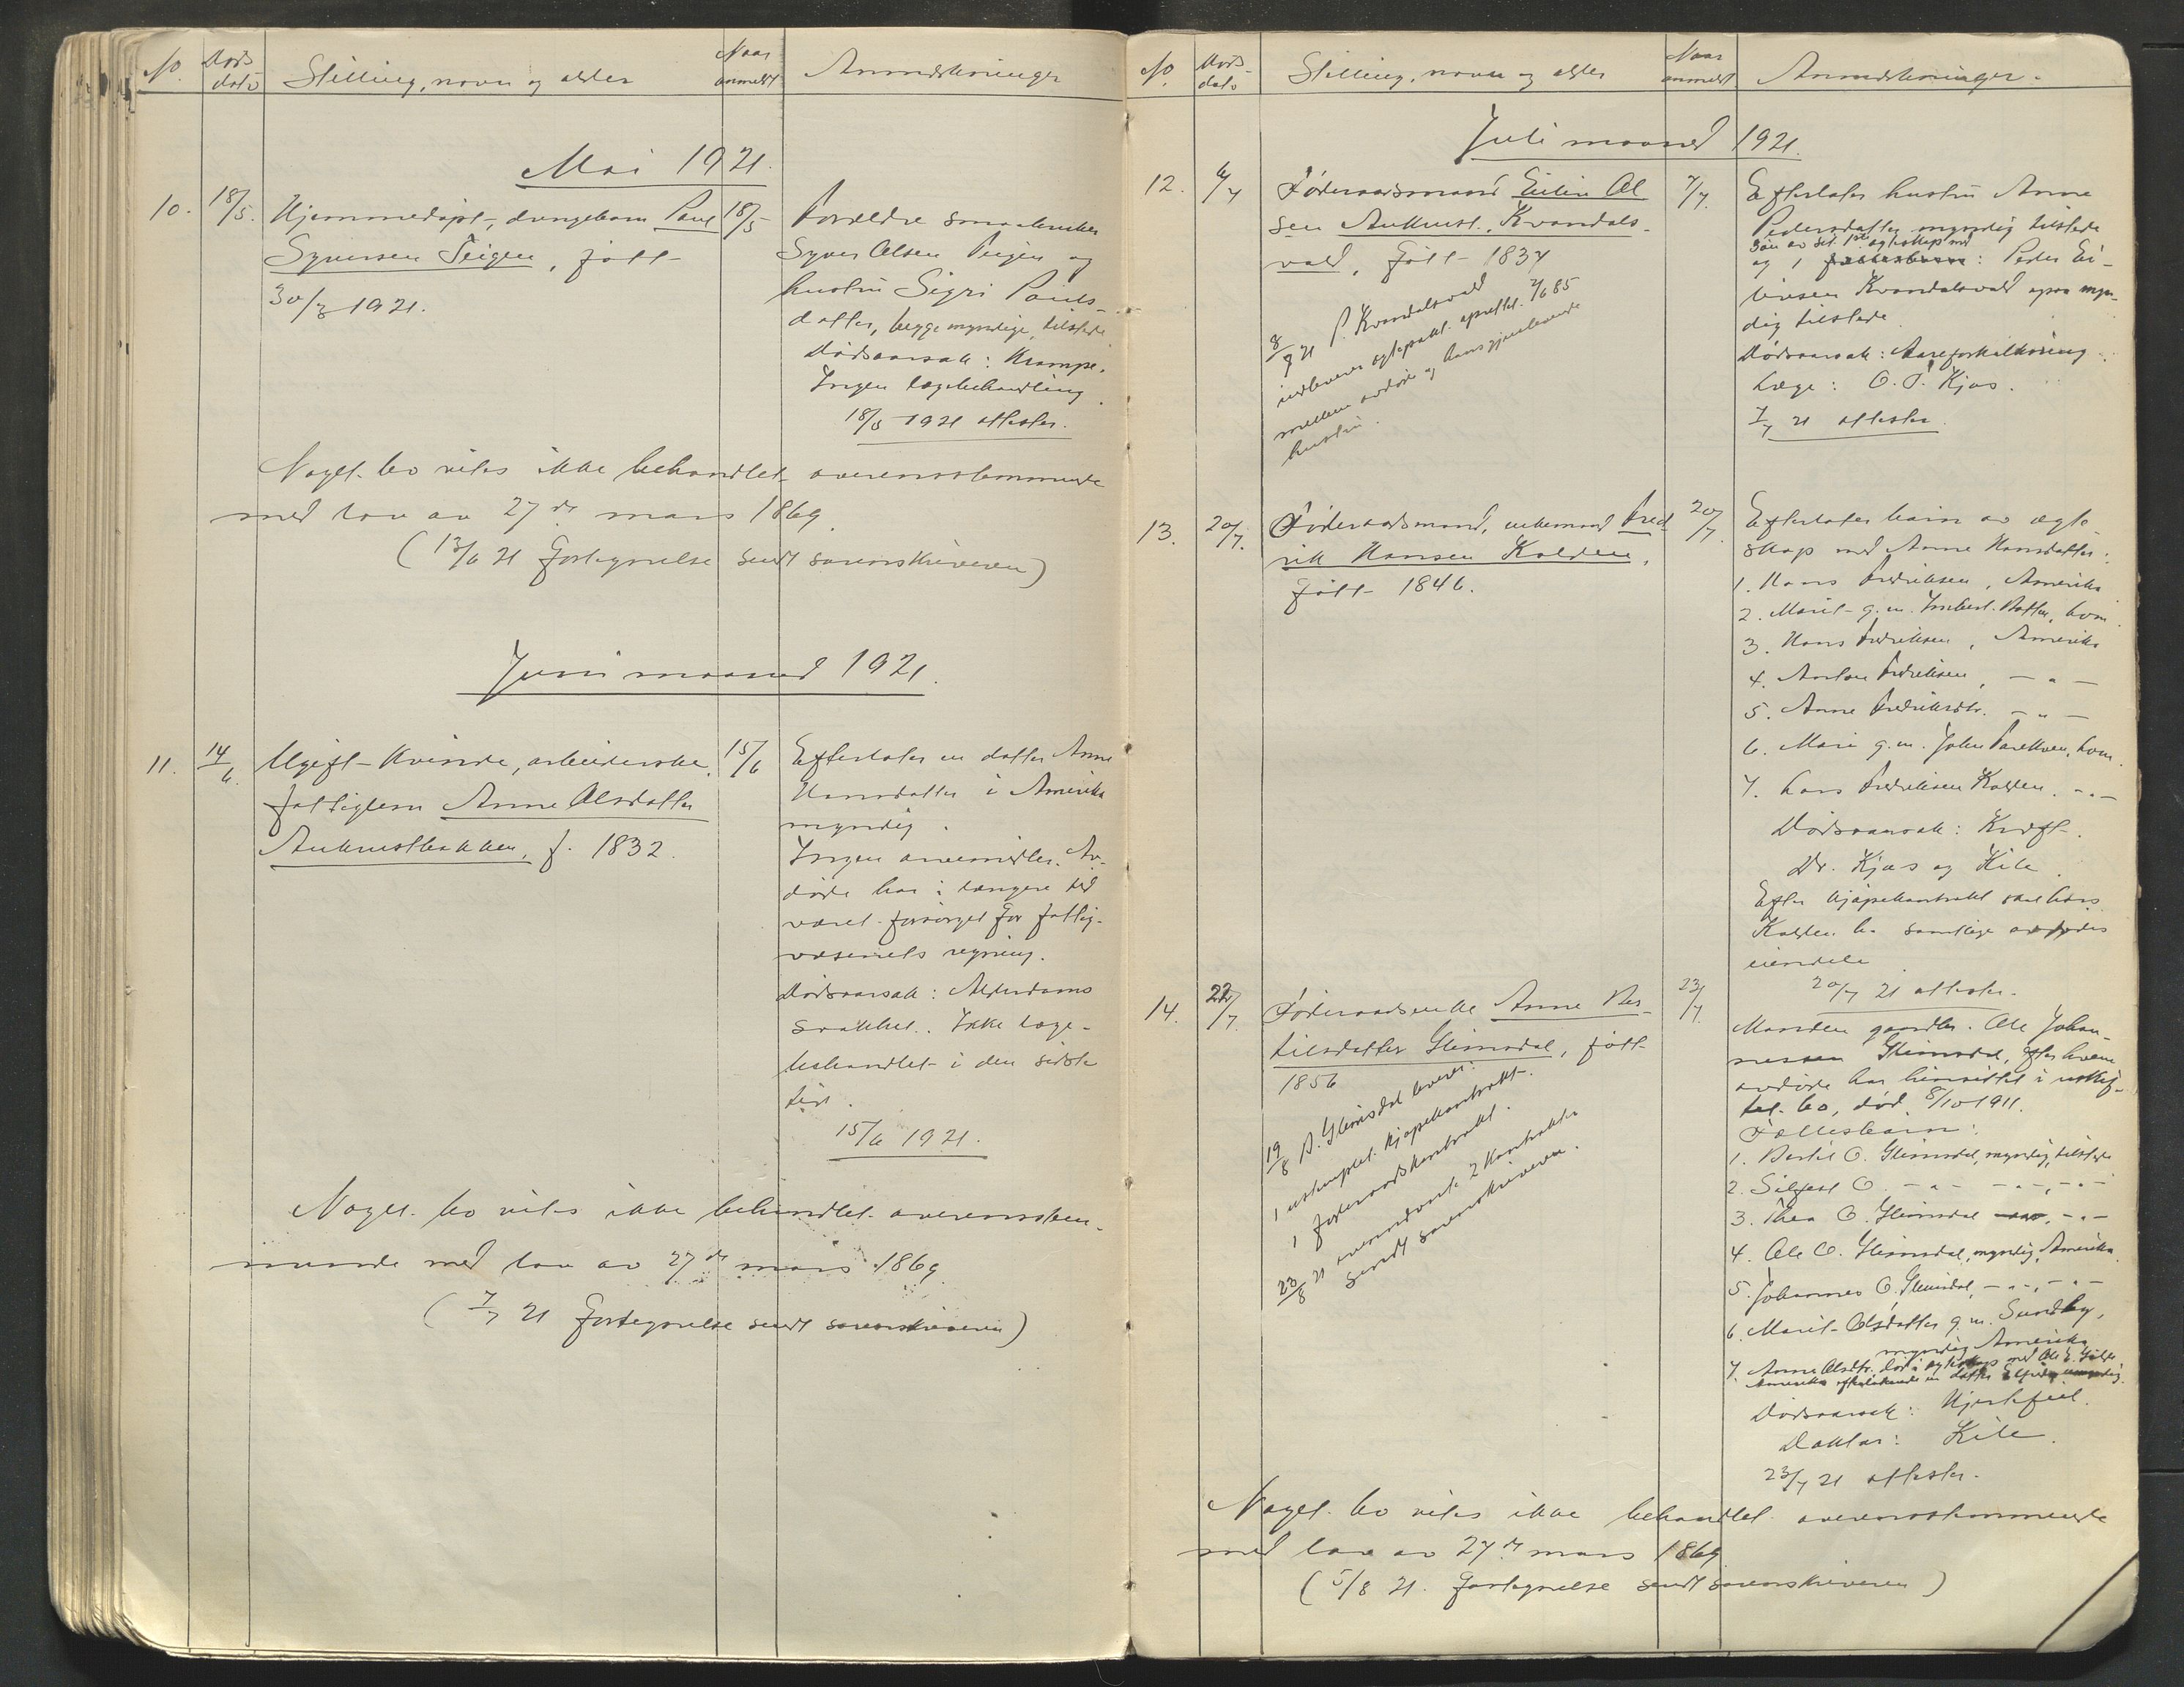 No. Døds dato Stilling, navn og alder Naar anmeldt Anmerkninger
Mai 1921.
10. 18/5. Hjemmedøpt, drengebarn Paul
Syversen Teigen, født
30/3 1921.
18/5
Forældre smaabruker
Syver Olsen Teigen og
hustru Sigri Pauls-
datter, begge myndige, tilstede.
Dødsaarsak: Krampe.
Ingen lægebehandling.
18/5 1921 attester.
Noget bo vites ikke behandlet overensstemmende
med lov av 27de mars 1869.
(13/6 21 Fortegnelse sendt sorenskriveren)
Juni maaned 1921.
11. 14/6. Ugift kvinde, arbeiderske,
fattiglem Anne Olsdatter
Aukrustbakken, f. 1832.
15/6
Efterlater en datter Anne
Hansdatter i Amerika
myndig.
Ingen arvemidler. Av-
døde har i længere tid
været forsørget for fattig-
væsenets regning.
Dødsaarsak: Alderdoms
svakhet. Ikke læge-
behandlet i den sidste
tid.
15/6 1921.
Noget bo vites ikke behandlet overensstem-
mende med lov av 27de mars 1869
(7/7 21 Fortegnelse sendt sorenskriveren)
No. Døds dato Stilling, navn og alder Naar anmeldt Anmerkninger.
Juli maaned 1921.
12. 6/7 Føderaadsmand Eilin Ol
sen Aukrust, Kvandals-
vold, født 1837
8/7 21 P. Kvandalsvold
indleverer egtepakt oprettet 7/6 85
mellem avdøde og hans gjenlevende
hustru.
7/7.
Efterlater hustru Anne
Pedersdatter myndig tilstede
søn av sit 1ste egteskap med
og 1 : Peder Ei-
linsen Kvandalsvold ogsaa myn-
dig tilstede
Dødsaarsak: Aareforkalkning.
Læge: O. T. Kjøs.
7/7 21 attester.
13. 20/7. Føderaadsmand, enkemand Fred
rik Hansen Kolden,
født 1846.
20/7.
Efterlater barn av egte-
skap med Anne Hansdatter:
1. Hans Fredriksen, Amerika
2. Marit g.m. Ingebret Bottem, Lom.
3. Hans Fredriksen, Amerika
4. Anton Fredriksen, — " —
5. Anne Fredriksdtr. — " —
6. Mari g.m. John , Lom.
7. Lars Fredriksen Kolden. — " —
Dødsaarsak: Kræft.
Dr. Kjøs og Kile.
Efter kjøpekontrakt skal Lars
Kolden ha samtlige avdødes
eiendele.
20/7 21 attester.
14. 22/7. Føderaadsenke Anne Ber-
tilsdatter Glimsdal, født
1856
19/8 B. Glimsdal leverer:
1 ustemplet kjøpekontrakt.
1 føderaadskontrakt.
23/8 21 ovennævnte 2 kontrakter
sendt sorenskriveren.
23/7.
Manden gaardbr. Ole Johan-
nessen Glimsdal, efter hvem
avdøde har hensittet i uskif-
tet bo, død 8/10 1911.
Fællesbarn:
1. Bertil O. Glimsdal, myndig, tilstede
2. Silfest O. — " — — " —, — " —
3. Thea O. Glimsdal , — " —
4. Ole O. Glimsdal, myndig, Amerika.
5. Johannes O. Glimsdal, — " —, — " —
6. Marit Olsdatter g.m. Sundby,
myndig Amerika
7. Anne Olsdtr. død i egteskap med Ole E.
Amerika efterlatende en datter
Dødsaarsak: Hjertefeil.
Doktor: Kile.
23/7 21 attester.
Noget bo vites ikke behandlet overensstemmende
med lov av 27de mars 1869
(5/8 21. Fortegnelse sendt sorenskriveren)